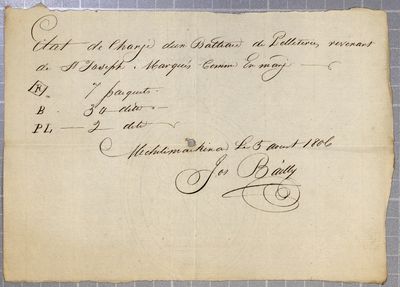 Etat de Charge d'un Batteau de Pelleteries revenant
de St Joseph. Marqués Comme En marge
7 paquets.
B. 30 dito
PL — 2 dito
Michilimakina Le 5 aout 1806
Jos Bailly